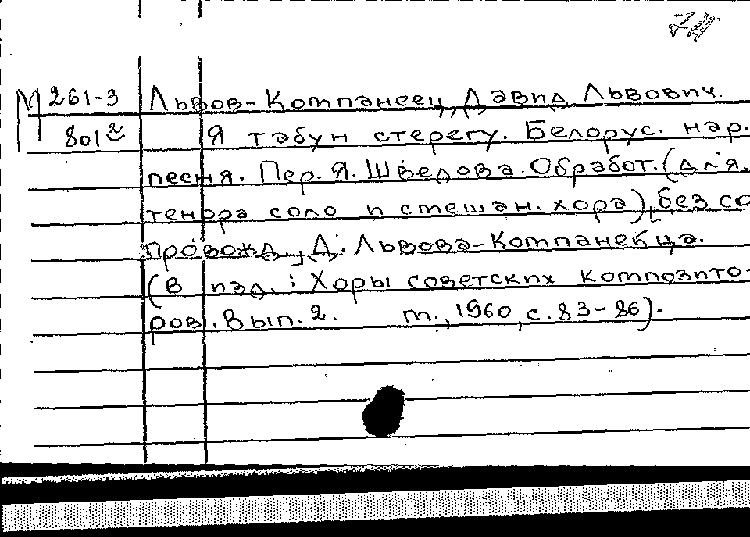 М 261-3 Львов-Компанеец, Давид Львович.
801² Я табун стерегу. Белорус. нар.
песня. Пер. Я. Шведова. Обработ. (для
тенора соло и смешан. хора), без со
провожд., Д. Львова-Компанейца.
(в изд.: Хоры советских композито-
ров. Вып. 2. м., 1960, с. 83-86).